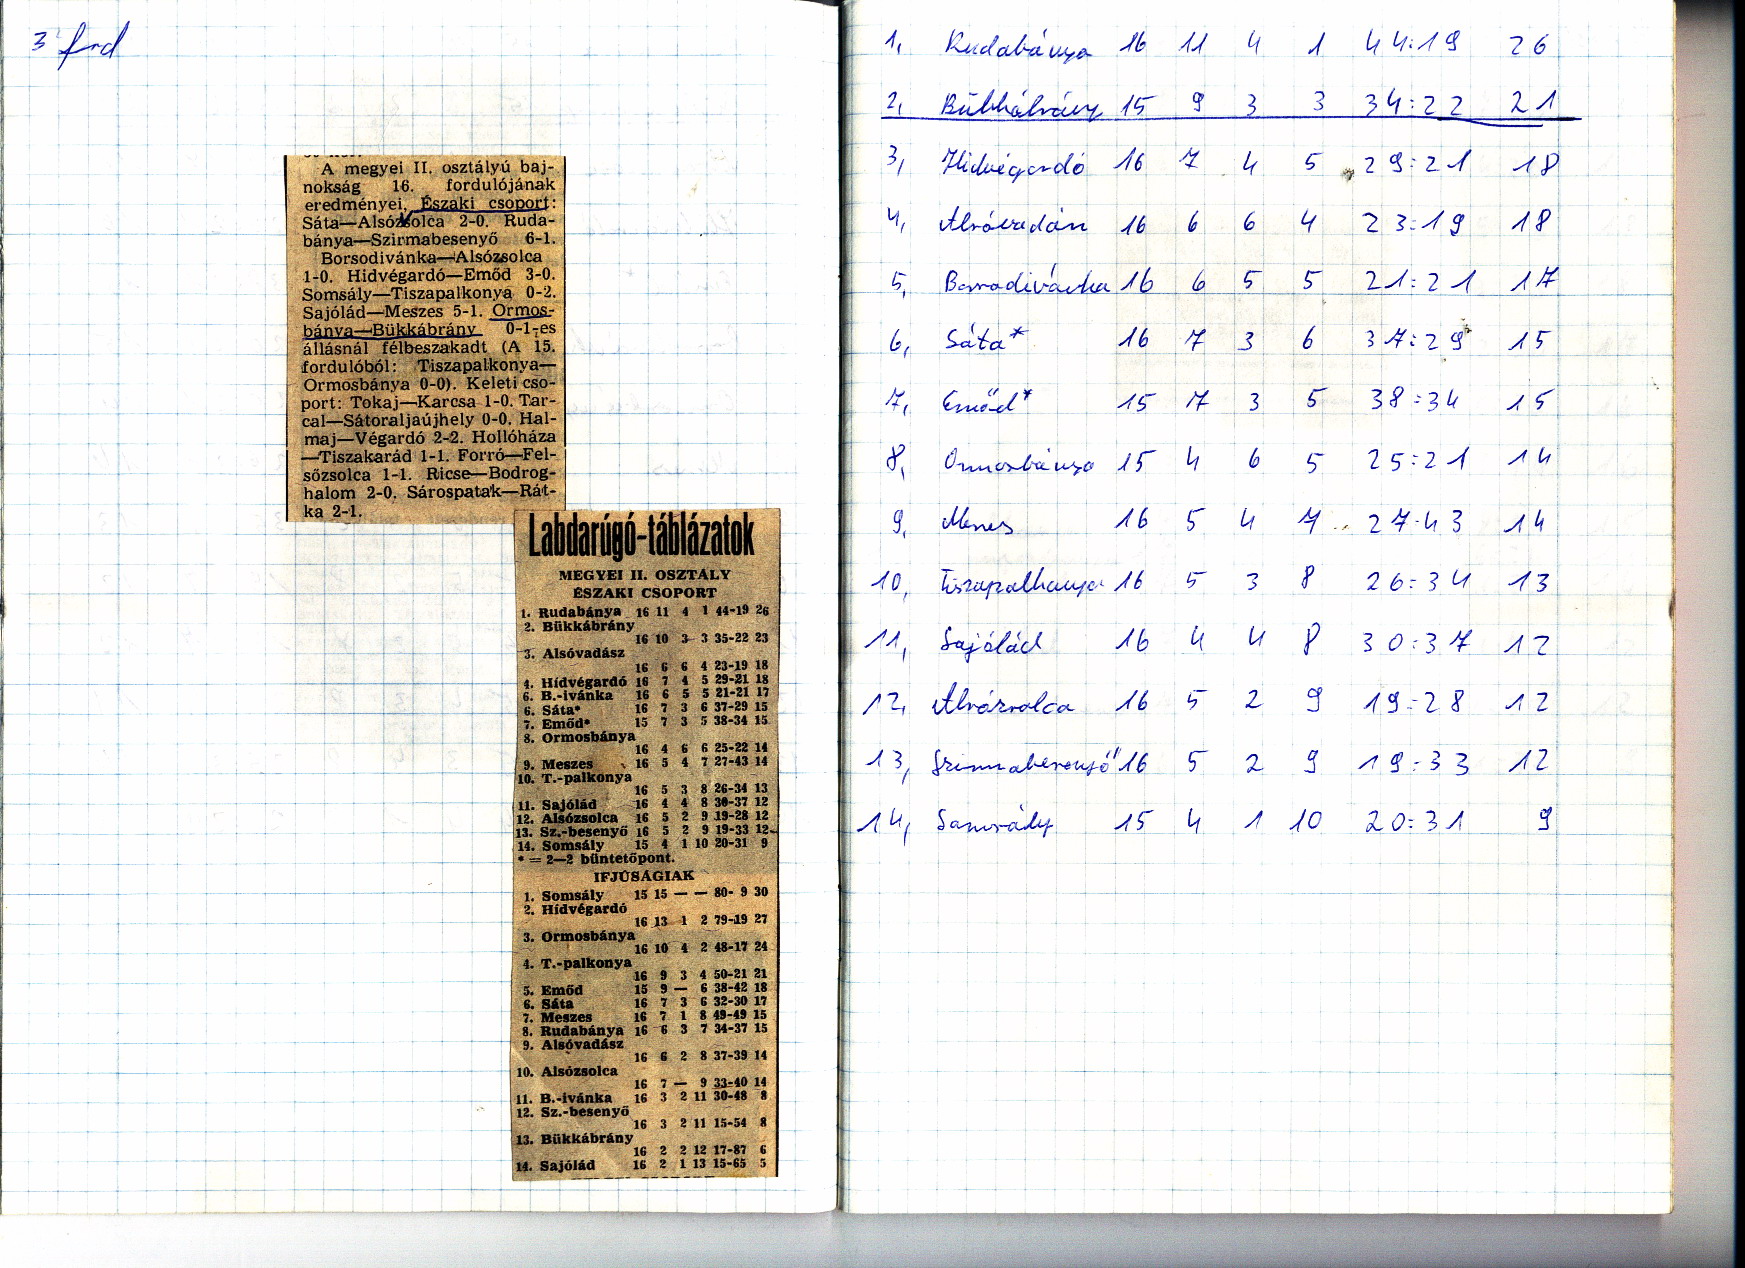 3 frd
A megyei II. osztályú baj-
nokság 16. fordulójának
eredményei, Északi csoport:
Sáta—Alsózsolca 2-0. Ruda-
bánya—Szirmabesenyő 6-1.
Borsodivánka—Alsózsolca
1-0. Hidvégardó—Emőd 3-0.
Somsály—Tiszapalkonya 0-2.
Sajólád—Meszes 5-1. Ormos-
bánya—Bükkábrány 0-1-es
állásnál félbeszakadt (A 15.
fordulóból: Tiszapalkonya—
Ormosbánya 0-0). Keleti cso-
port: Tokaj—Karcsa 1-0. Tar-
cal—Sátoraljaújhely 0-0. Hal-
maj—Végardó 2-2. Hollóháza
—Tiszakarád 1-1. Forró—Fel-
sőzsolca 1-1. Ricse—Bodrog-
halom 2-0. Sárospatak—Rát-
ka 2-1.
Labdarúgó-táblázatok
MEGYEI II. OSZTÁLY
ÉSZAKI CSOPORT
1. Rudabánya 16 11 4 1 44-19 26
2. Bükkábrány
16 10 3 3 35-22 23
3. Alsóvadász
16 6 6 4 23-19 18
4. Hídvégardó 16 7 4 5 29-21 18
6. B.-ivánka 16 6 5 5 21-21 17
6. Sáta* 16 7 3 6 37-29 15
7. Emőd* 15 7 3 5 38-34 15
8. Ormosbánya
16 4 6 6 25-22 14
9. Meszes 16 5 4 7 27-43 14
10. T.-palkonya
16 5 3 8 26-34 13
11. Sajólád 16 4 4 8 30-37 12
12. Alsózsolca 16 5 2 9 19-28 12
13. Sz.-besenyő 16 5 2 9 19-33 12
14. Somsály 15 4 1 10 20-31 9
* = 2—2 büntetőpont.
IFJÚSÁGIAK
1. Somsály 15 15 — — 80- 9 30
2. Hídvégardó
16 13 1 2 79-19 27
3. Ormosbánya
16 10 4 2 48-17 24
4. T.-palkonya
16 9 3 4 50-21 21
5. Emőd 15 9 — 6 38-42 18
6. Sáta 16 7 3 6 32-30 17
7. Meszes 16 7 1 8 49-49 15
8. Rudabánya 16 6 3 7 34-37 15
9. Alsóvadász
16 6 2 8 37-39 14
10. Alsózsolca
16 7 — 9 33-40 14
11. B.-ivánka 16 3 2 11 30-48 8
12. Sz.-besenyő
16 3 2 11 15-54 8
13. Bükkábrány
16 2 2 12 17-87 6
14. Sajólád 16 2 1 13 15-65 5
1, Rudabánya 16 11 4 1 44:19 26
2, Bükkábrány 15 9 3 3 34:22 21
3, Hidvégardó 16 7 4 5 29:21 18
4, Alsóvadász 16 6 6 4 23:19 18
5, Borsodivánka 16 6 5 5 21:21 17
6, Sáta* 16 7 3 6 37:29 15
7, Emőd* 15 7 3 5 38:34 15
8, Ormosbánya 15 4 6 5 25:21 14
9, Meszes 16 5 4 7 27:43 14
10, Tiszapalkonya 16 5 3 8 26:34 13
11, Sajólád 16 4 4 8 30:37 12
12, Alsózsolca 16 5 2 9 19:28 12
13, Szirmabesenyő 16 5 2 9 19:33 12
14, Somsály 15 4 1 10 20:31 9